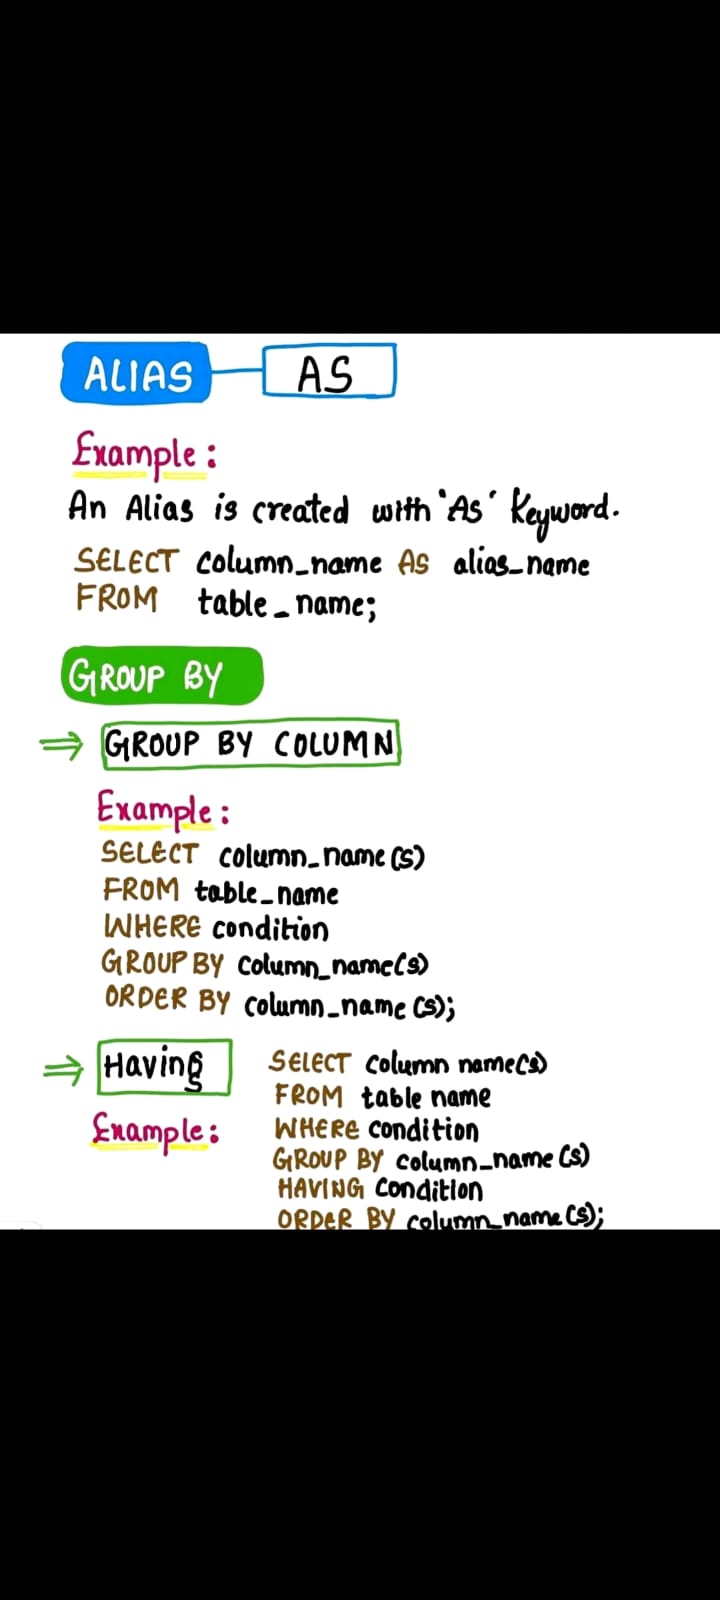 ALIAS AS
Example:
An Alias is created with 'As' Keyword.
SELECT column_name AS alias_name
FROM table_name;
GROUP BY
⇒ GROUP BY COLUMN
Example:
SELECT column_name(s)
FROM table_name
WHERE condition
GROUP BY column_name(s)
ORDER BY column_name(s);
⇒ Having
Example:
SELECT column name(s)
FROM table name
WHERE condition
GROUP BY column_name(s)
HAVING condition
ORDER BY column_name(s);